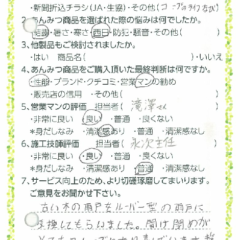 ・新聞折込チラシ(JA・生協)・その他(
2.あんみつ商品を選ばれた際の悩みは何でしたか。
・花粉・暑さ・寒さ・西日・防犯・騒音・その他(
3.他製品もご検討されましたか。
・はい 商品名( )・いいえ
4.あんみつ商品をご購入頂いた最終判断は何ですか。
・性能・ブランド・クチコミ・営業マンの勧め
・販売店の信用 ・その他( )
5.営業マンの評価 担当者( 滝澤
・非常に良い ・良い ・普通 ・悪い
※身だしなみ ・清潔感あり ・普通 ・清潔感なし
6.施工技師評価 担当者(
・非常に良い ・良い ・普通 ・悪い
※身だしなみ ・清潔感あり ・普通 ・清潔感なし
7.サービス向上のため、より切磋琢磨してまいります。
ご意見をお聞かせ下さい。
古い木の雨戸をルーバー型の雨戸に
交換してもらいました。開け閉めが